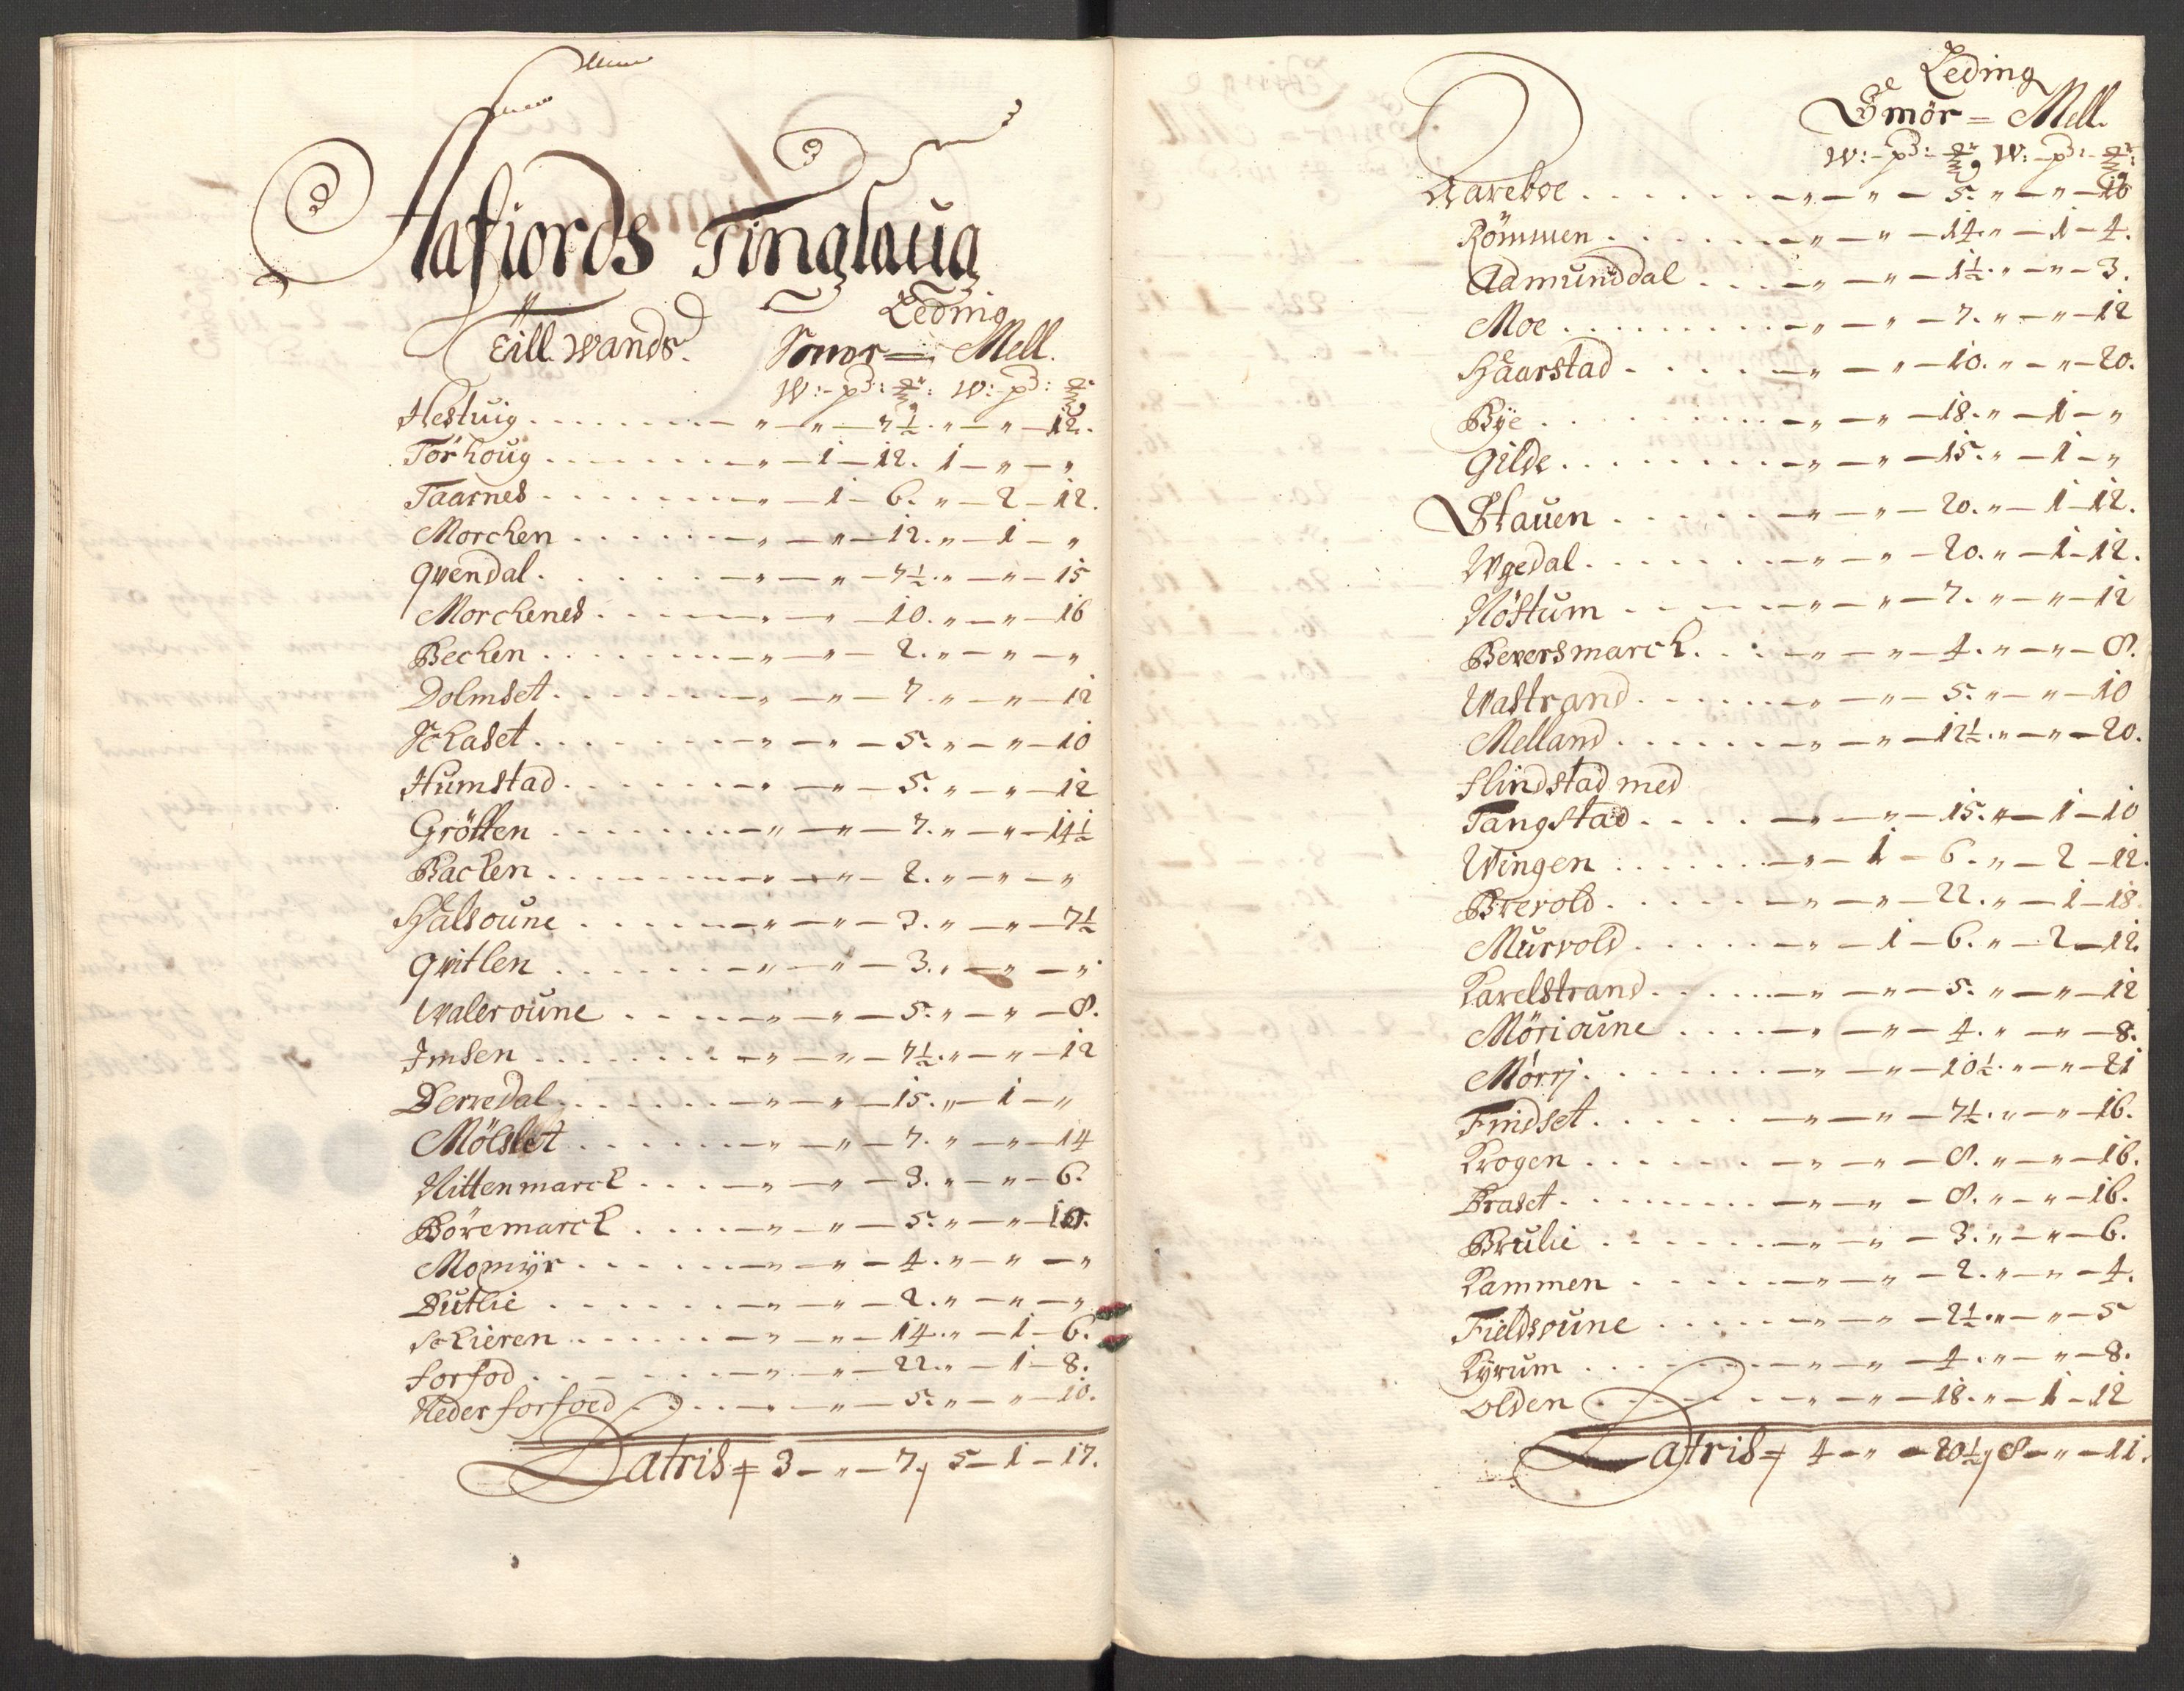 Aafiords Tinglaug
Eill. Wands.
Leding
Smør = Mell.
W: - p3: - W: - p3:
Hestuig . . . . . . . . „ — „ — 7½. „ — „ — 12.
Törhoug . . . . . . . . „ — 1 — 12. 1 — „ — „
Taarnes . . . . . . . . „ — 1 — 6. „ — 2 — 12.
Morchen . . . . . . . . „ — „ — 12. „ — 1 — „
Qvendal . . . . . . . . „ — „ — 7½. „ — „ — 15
Morchenes . . . . . . . . „ — „ — 10. „ — „ — 16
Bechen . . . . . . . . „ — „ — 2. „ — „ — „
Dolmset . . . . . . . . „ — „ — 7. „ — „ — 12
Schaset . . . . . . . . „ — „ — 5. „ — „ — 10
Humstad . . . . . . . . „ — „ — 5. „ — „ — 12
Grötten . . . . . . . . „ — „ — 7. „ — „ — 14½
Bachen . . . . . . . . „ — „ — 2. „ — „ — „
Halsoune . . . . . . . . „ — „ — 3. „ — „ — 7½
Qvitlen . . . . . . . . „ — „ — 3. „ — „ — „
Waleroune . . . . . . . . „ — „ — 5. „ — „ — 8.
Imsen . . . . . . . . „ — „ — 7½. „ — „ — 12
Derredal . . . . . . . . „ — „ — 15. „ — 1 — „
Mölslet . . . . . . . . „ — „ — 7. „ — „ — 14
Nittenmarck . . . . . . . . „ — „ — 3. „ — „ — 6.
Böremarck . . . . . . . . „ — „ — 5. „ — „ — 10.
Momyr . . . . . . . . „ — „ — 4. „ — „ — „
Dutlie . . . . . . . . „ — „ — 2. „ — „ — „
Schieren . . . . . . . . „ — „ — 14. „ — 1 — 6.
forfod . . . . . . . . „ — „ — 22. „ — 1 — 8.
Neder forfoed . . . . . . . . „ — „ — 5. „ — „ — 10.
Latris 3 — „ — 7, 5 — 1 — 17.
Leding
Smör = Mell.
W: - p3: - W: - p3: -
Aareboe . . . . . . . . „ — „ — 5. „ — „ — 10
Römmen . . . . . . . . „ — „ — 14. „ — 1 — 4.
Admunddal . . . . . . . . „ — „ — 1½. „ — „ — 3.
Moe . . . . . . . . „ — „ — 7. „ — „ — 12
Haarstad . . . . . . . . „ — „ — 10. „ — „ — 20.
Bye . . . . . . . . „ — „ — 18. „ — 1 — „
Gilde . . . . . . . . „ — „ — 15. „ — 1 — „
Stauen . . . . . . . . „ — „ — 20. „ — 1 — 12.
Wgedal . . . . . . . . „ — „ — 20. „ — 1 — 12.
Nöstum . . . . . . . . „ — „ — 7. „ — „ — 12
Beversmarck . . . . . . . . „ — „ — 4. „ — „ — 8.
Wastrand . . . . . . . . „ — „ — 5. „ — „ — 10
Melland . . . . . . . . „ — „ — 12½. „ — „ — 20.
flindstad med
Tangstad . . . . . . . . „ — „ — 15. „ — 1 — 10
Wingen . . . . . . . . „ — 1 — 6. „ — 2 — 12.
Brevold . . . . . . . . „ — „ — 22. „ — 1 — 18
Murvold . . . . . . . . „ — 1 — 6. „ — 2 — 12.
Karelstrand . . . . . . . . „ — „ — 5. „ — „ — 12
Mörioune . . . . . . . . „ — „ — 4. „ — „ — 8.
Mørrj . . . . . . . . „ — „ — 10½. „ — „ — 21
Findset . . . . . . . . „ — „ — 7½. „ — „ — 16.
Krogen . . . . . . . . „ — „ — 8. „ — „ — 16.
Braset . . . . . . . . „ — „ — 8. „ — „ — 16.
Brulie . . . . . . . . „ — „ — 3. „ — „ — 6.
Kammen . . . . . . . . „ — „ — 2. „ — „ — 4.
Fieldsoune . . . . . . . . „ — „ — 2½. „ — „ — 5
Kyrum . . . . . . . . „ — „ — 4. „ — „ — 8.
Olden . . . . . . . . „ — „ — 18. „ — 1 — 12
Latris 4 — „ — 20½, 8 — „ — 11.